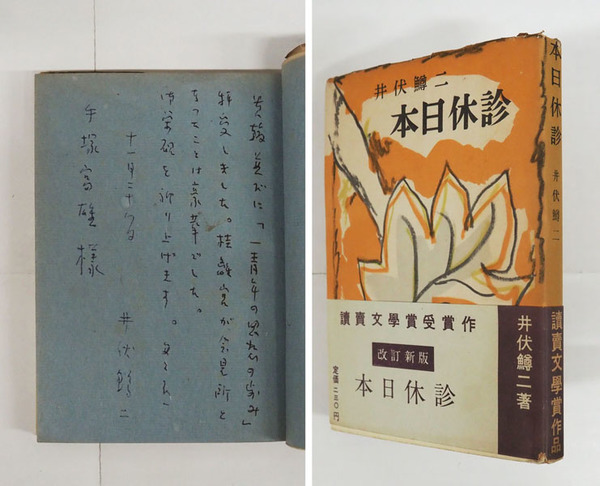 貴翰並びに「一青年の思想の歩み」
拝受しました。桂離宮が会見所と
なつたことは でした。
を祈り上げます。
十一月二十 日
井伏鱒二
手塚富雄様
井伏鱒二
本日休診
讀賣文學賞受賞作
改訂新版
本日休診
定價二 〇円
井伏鱒二著
本日休診 井伏鱒二
讀賣文學賞作品